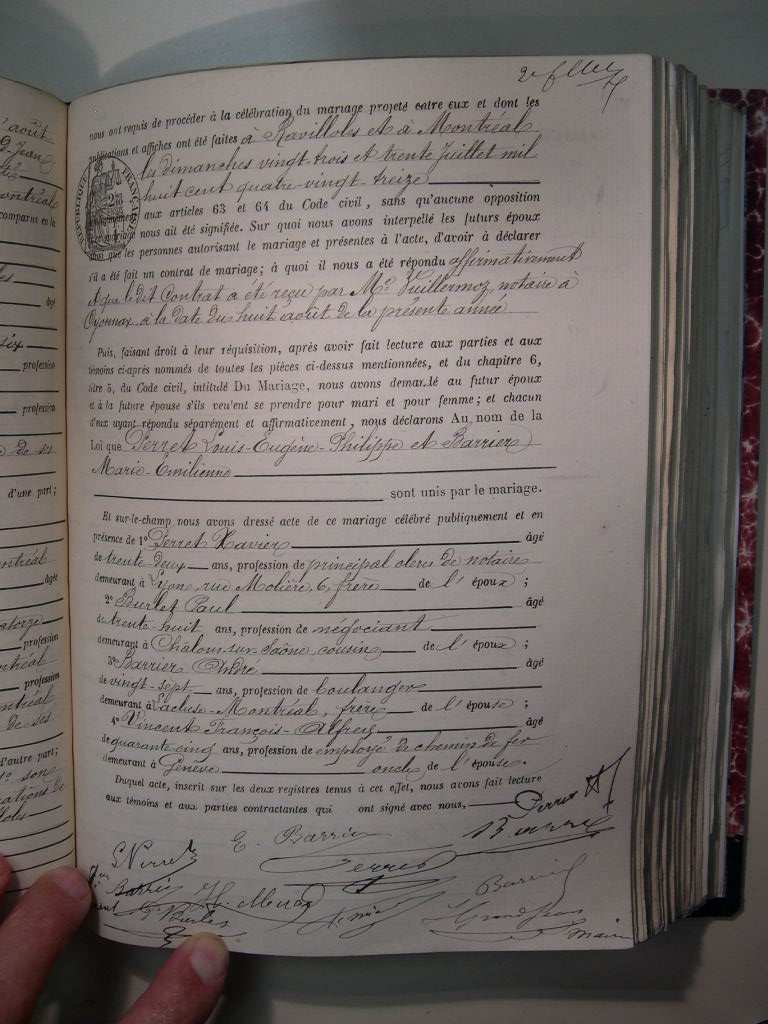 août
Jean
ontréal
comparus en la
les
âgé
six
profession
profession
de ses
d'une part;
ontréal
âgée
atorze
profession
ontréal
profession
ontréal
de ses
d'autre part;
son
ations de
2e f
nous ont requis de procéder à la célébration du mariage projeté entre eux et dont les
publications et affiches ont été faites à Ravilloles et à Montréal
les dimanches vingt trois et trente Juillet mil
huit cent quatre-vingt-treize
aux articles 63 et 64 du Code civil, sans qu'aucune opposition
mariage nous ait été signifiée. Sur quoi nous avons interpellé les futurs époux
ainsi que les personnes autorisant le mariage et présentes à l'acte, d'avoir à déclarer
s'il a été fait un contrat de mariage; à quoi il nous a été répondu affirmativement
et que le dit Contrat a été reçu par Me Vuillermoz, notaire à
Oyonnax à la date du huit août de la présente année
Puis, faisant droit à leur réquisition, après avoir fait lecture aux parties et aux
témoins ci-après nommés de toutes les pièces ci-dessus mentionnées, et du chapitre 6,
titre 5, du Code civil, intitulé Du Mariage, nous avons demandé au futur époux
et à la future épouse s'ils veulent se prendre pour mari et pour femme; et chacun
d'eux ayant répondu séparément et affirmativement, nous déclarons Au nom de la
Loi que Perret Louis-Eugène-Philippe et Barrier
Marie-Emilienne
sont unis par le mariage.
Et sur-le-champ nous avons dressé acte de ce mariage célébré publiquement et en
présence de 1° Perret Xavier âgé
de trente deux ans, profession de principal clerc de notaire
demeurant à Lyon, rue Molière, 6, frère de l'époux;
2° Burlet Paul âgé
de trente huit ans, profession de négociant
demeurant à Chalon-sur-Saône, cousin de l'époux;
3° Barrier André âgé
de vingt-sept ans, profession de boulanger
demeurant à Lacluse-Montréal, frère de l'épouse;
4° Vincent François-Alfred âgé
de quarante cinq ans, profession de employé de chemin de fer
demeurant à Genève oncle de l'épouse.
Duquel acte, inscrit sur les deux registres tenus à cet effet, nous avons fait lecture
aux témoins et aux parties contractantes qui ont signé avec nous,
Perret
E. Barrier
Perret
Barrier
P. Burlet
Grandjean
maire